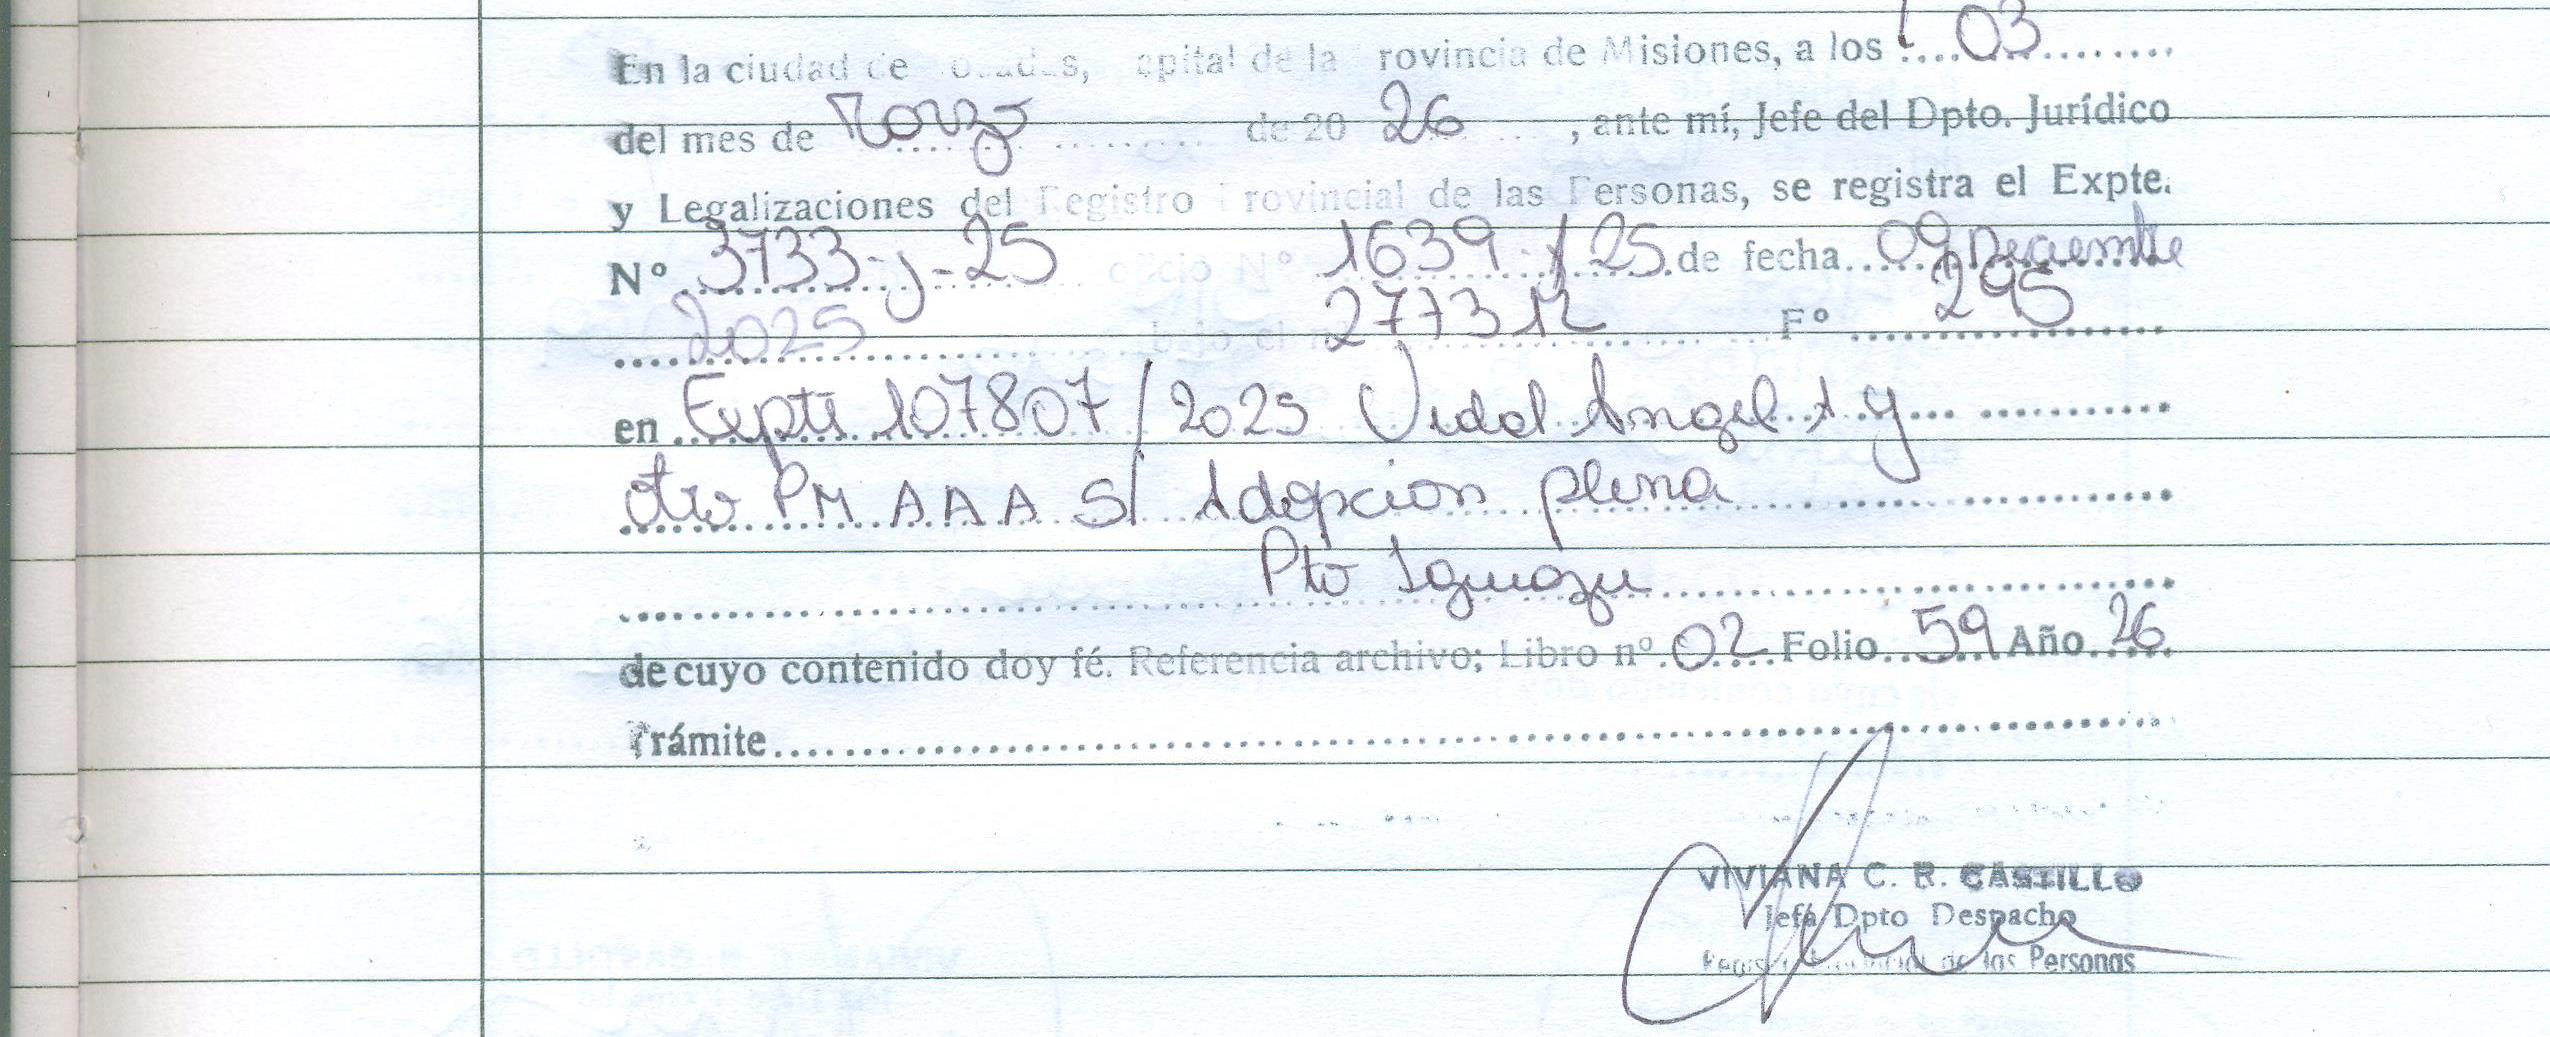 En la ciudad de Posadas, Capital de la Provincia de Misiones, a los 03
del mes de Marzo de 20 26, ante mí, Jefe del Dpto. Jurídico
y Legalizaciones del Registro Provincial de las Personas, se registra el Expte.
Nº 3733-J-25 oficio Nº 1639/25 de fecha 09 Deciembre
2025 bajo el n 277312 Fº 295
en Expte 107807/2025 Vidal Angel A y
otro PM AAA S/ Adopcion plena
Pto Iguazu
de cuyo contenido doy fé. Referencia archivo; Libro nº 02 Folio 59 Año 26
Trámite
VIVIANA C. R. CASTILLO
Jefa Dpto Despacho
Registro Provincial de las Personas